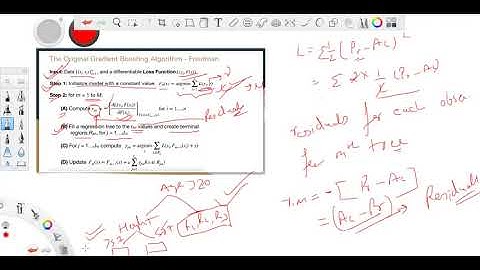 The Original Gradient Boosting Algorithm - Freidman
Input: Data {(xᵢ, yᵢ)}ⁿᵢ₌₁, and a differentiable Loss Function L(yᵢ, F(x))
Step 1: Initialize model with a constant value: F₀(x) = argmin Σ L(yᵢ, γ)
Step 2: for m = 1 to M:
(A) Compute rᵢₘ = -[∂L(yᵢ, F(xᵢ))/∂F(xᵢ)] F(x)=Fₘ₋₁(x) for i = 1,...,n
(B) Fit a regression tree to the rᵢₘ values and create terminal
regions Rⱼₘ, for j = 1...Jₘ
(C) For j = 1...Jₘ compute γⱼₘ = argmin Σ L(yᵢ, Fₘ₋₁(xᵢ) + γ)
(D) Update Fₘ(x) = Fₘ₋₁(x) + ν Σ γₘ I(x ∈ Rⱼₘ)
Residuals
Age > 20
Height
R₁, R₂, R₃
L = Σ ½ (Pr - Ac)²
= Σ 2 × ½ (Pr - Ac)
residuals for each obsn
for mth tree
= - [ Pr - Ac ]
= (Ac - Pr) → Residuals